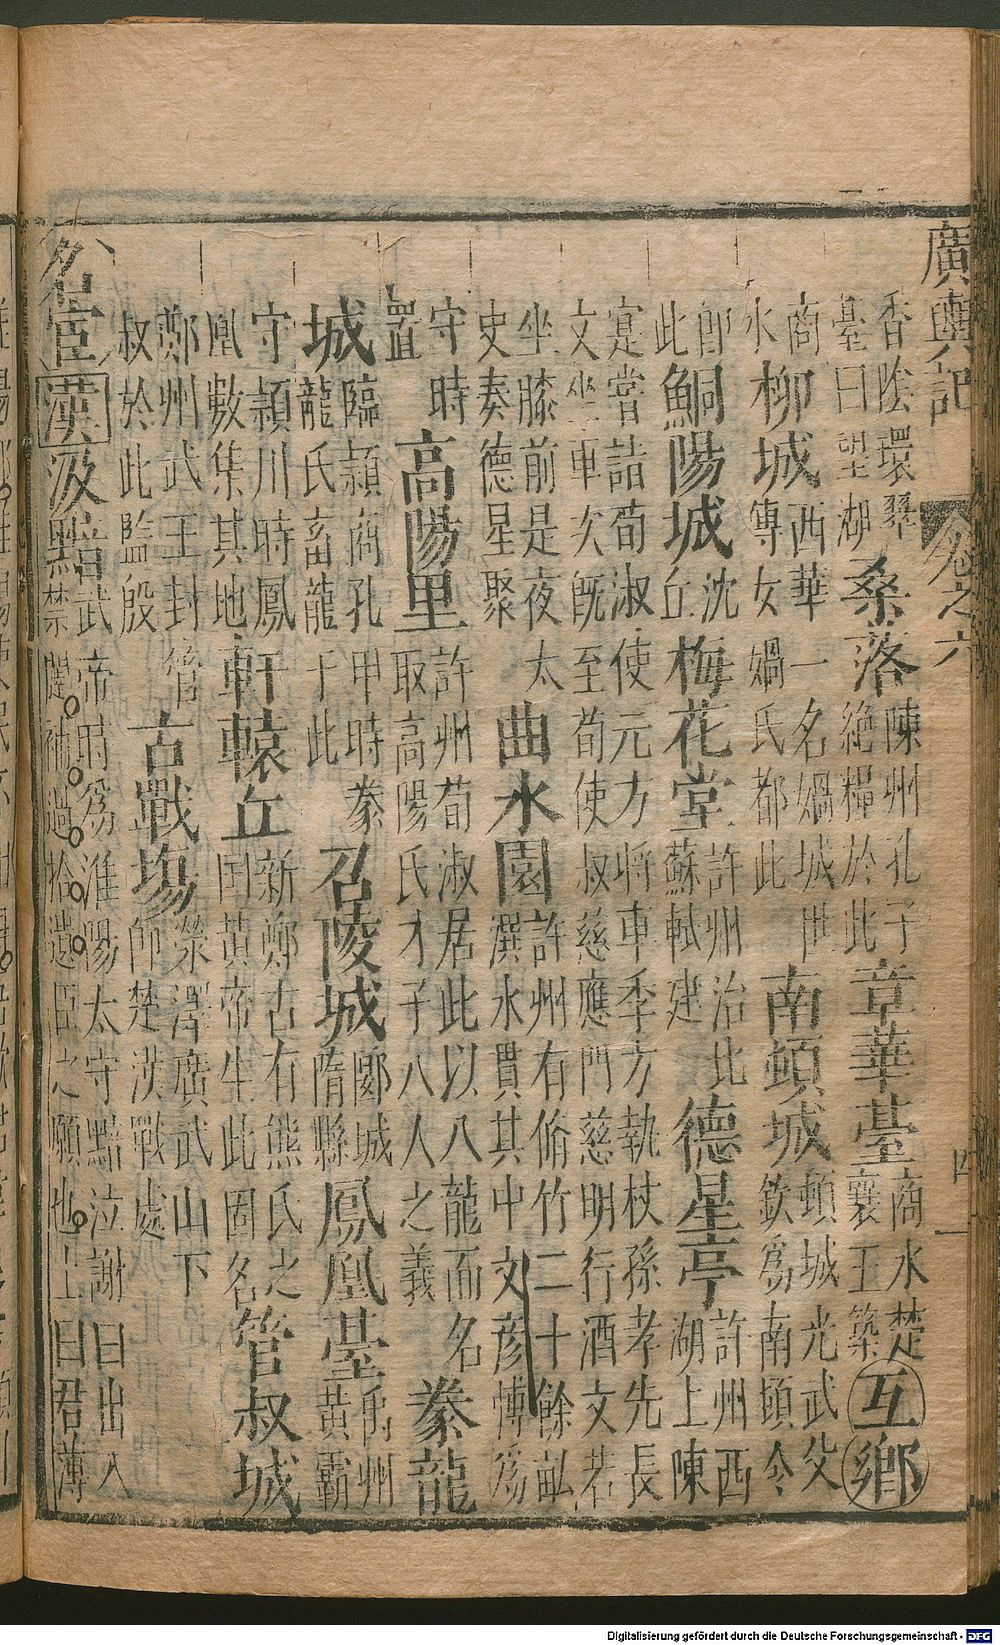 廣輿記 卷之六 四
香陰環翠臺曰望湖 桑落 陳州孔子絕糧於此 章華臺 商水楚襄王築 互鄉
商水 柳城 西華一名媧城世傳女媧氏都此 南頓城 頓城光武父欽爲南頓令
即此 鮦陽城 沈丘 梅花堂 許州治北蘇軾建 德星亭 許州西湖上陳
寔嘗詣荀淑使元方將車季方執杖孫孝先長文坐車次旣至荀使叔慈應門慈明行酒文若
坐膝前是夜太史奏德星聚 曲水園 許州有脩竹二十餘畝潩水貫其中文彥博爲
守時置 高陽里 許州荀淑居此以八龍而名取高陽氏才子八人之義 豢龍
城 臨潁商孔甲時豢龍氏畜龍于此 召陵城 郾城隋縣 鳳凰臺 禹州黃霸
守潁川時鳳凰數集其地 軒轅丘 新鄭古有熊氏之囯黃帝生此因名 管叔城
鄭州武王封管叔於此監殷 古戰塲 滎澤廣武山下即楚漢戰處
名臣 漢 汲黯 武帝時爲淮陽太守黯泣謝曰出入禁闥補過拾遺臣之願也上曰君薄
Digitalisierung gefördert durch die Deutsche Forschungsgemeinschaft - DFG